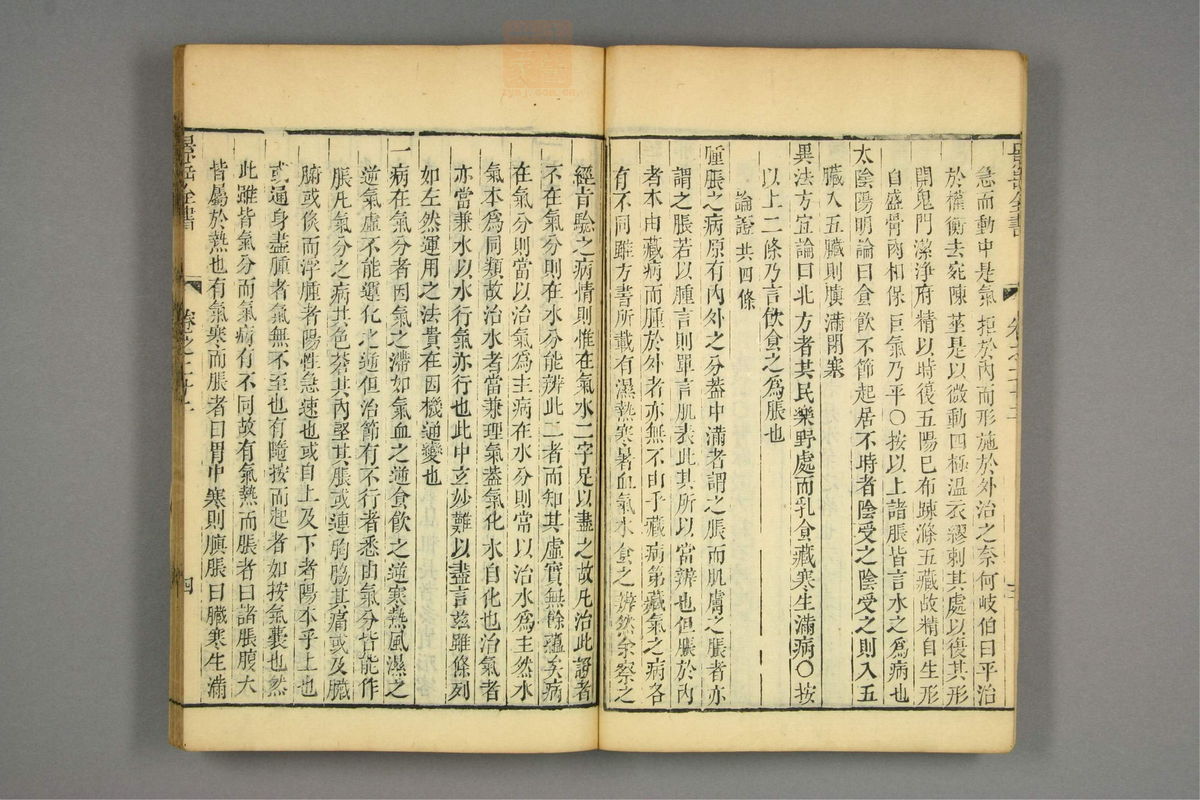 急而動中是氣拒於內而形施於外治之奈何岐伯曰平治
於權衡去宛陳莝是以微動四極溫衣繆刺其處以復其形
開鬼門潔淨府精以時復五陽已布踈滌五藏故精自生形
自盛骨肉相保巨氣乃平○按以上諸脹皆言水之為病也
太陰陽明論曰食飲不節起居不時者陰受之陰受之則入五
臟入五臟則䐜滿閉塞
異法方宜論曰北方者其民樂野處而乳食藏寒生滿病○按
以上二條乃言飲食之為脹也
論證共四條
腫脹之病原有內外之分蓋中滿者謂之脹而肌膚之脹者亦
謂之脹若以腫言則單言肌表此其所以當辨也但脹於內
者本由藏病而腫於外者亦無不由乎藏病第藏氣之病各
有不同雖方書所載有濕熱寒暑血氣水食之辨然余察之
經旨驗之病情則惟在氣水二字足以盡之故凡治此證者
不在氣分則在水分能辨此二者而知其虛實無餘蘊矣病
在氣分則當以治氣為主病在水分則當以治水為主然水
氣本為同類故治水者當兼理氣蓋氣化水自化也治氣者
亦當兼水以水行氣亦行也此中玄妙難以盡言茲雖條列
如左然運用之法貴在因機通變也
一病在氣分者因氣之滯如氣血之逆食飲之逆寒熱風濕之
逆氣虛不能運化之逆但治節有不行者悉由氣分皆能作
脹凡氣分之病其色蒼其內堅其脹或連胸脇其痛或及臟
腑或倏而浮腫者陽性急速也或自上及下者陽本乎上也
或通身盡腫者氣無不至也有隨按而起者如按氣囊也然
此雖皆氣分而氣病有不同故有氣熱而脹者曰諸脹腹大
皆屬於熱也有氣寒而脹者曰胃中寒則䐜脹曰臟寒生滿
景岳全書 卷之二十二 四